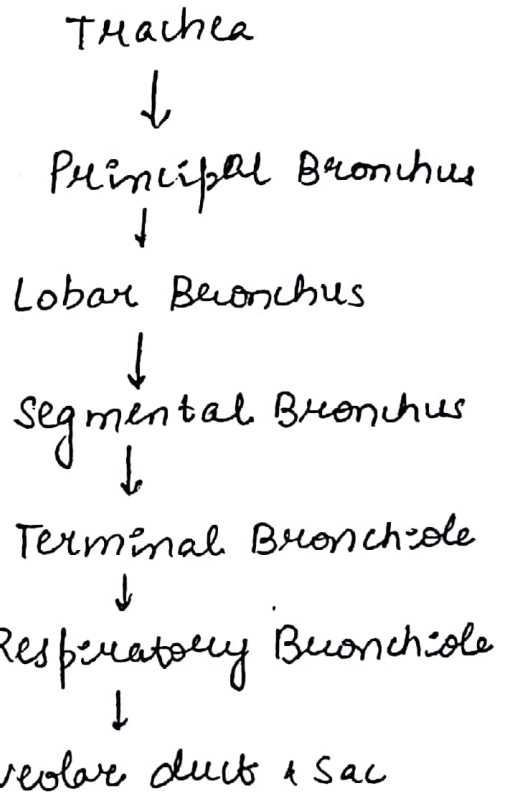 Trachea
↓
Principal Bronchus
↓
Lobar Bronchus
↓
Segmental Bronchus
↓
Terminal Bronchiole
↓
Respiratory Bronchiole
↓
veolar duct & Sac